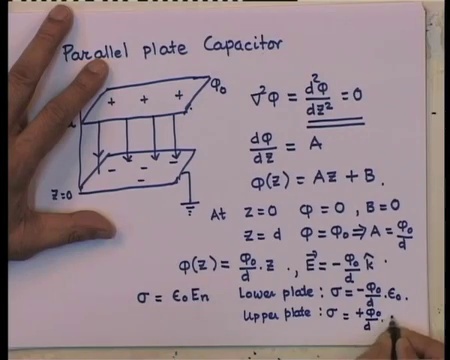 Parallel plate Capacitor
φ₀
+ + +
∇²φ = d²φ/dz² = 0
- - -
- -
dφ/dz = A
z=0
φ(z) = Az + B.
At z=0 φ=0, B=0
z=d φ=φ₀ ⇒ A = φ₀/d
φ(z) = φ₀/d . z , E⃗ = -φ₀/d k̂.
σ = ε₀En Lower plate : σ = -φ₀/d . ε₀.
Upper plate : σ = +φ₀/d .